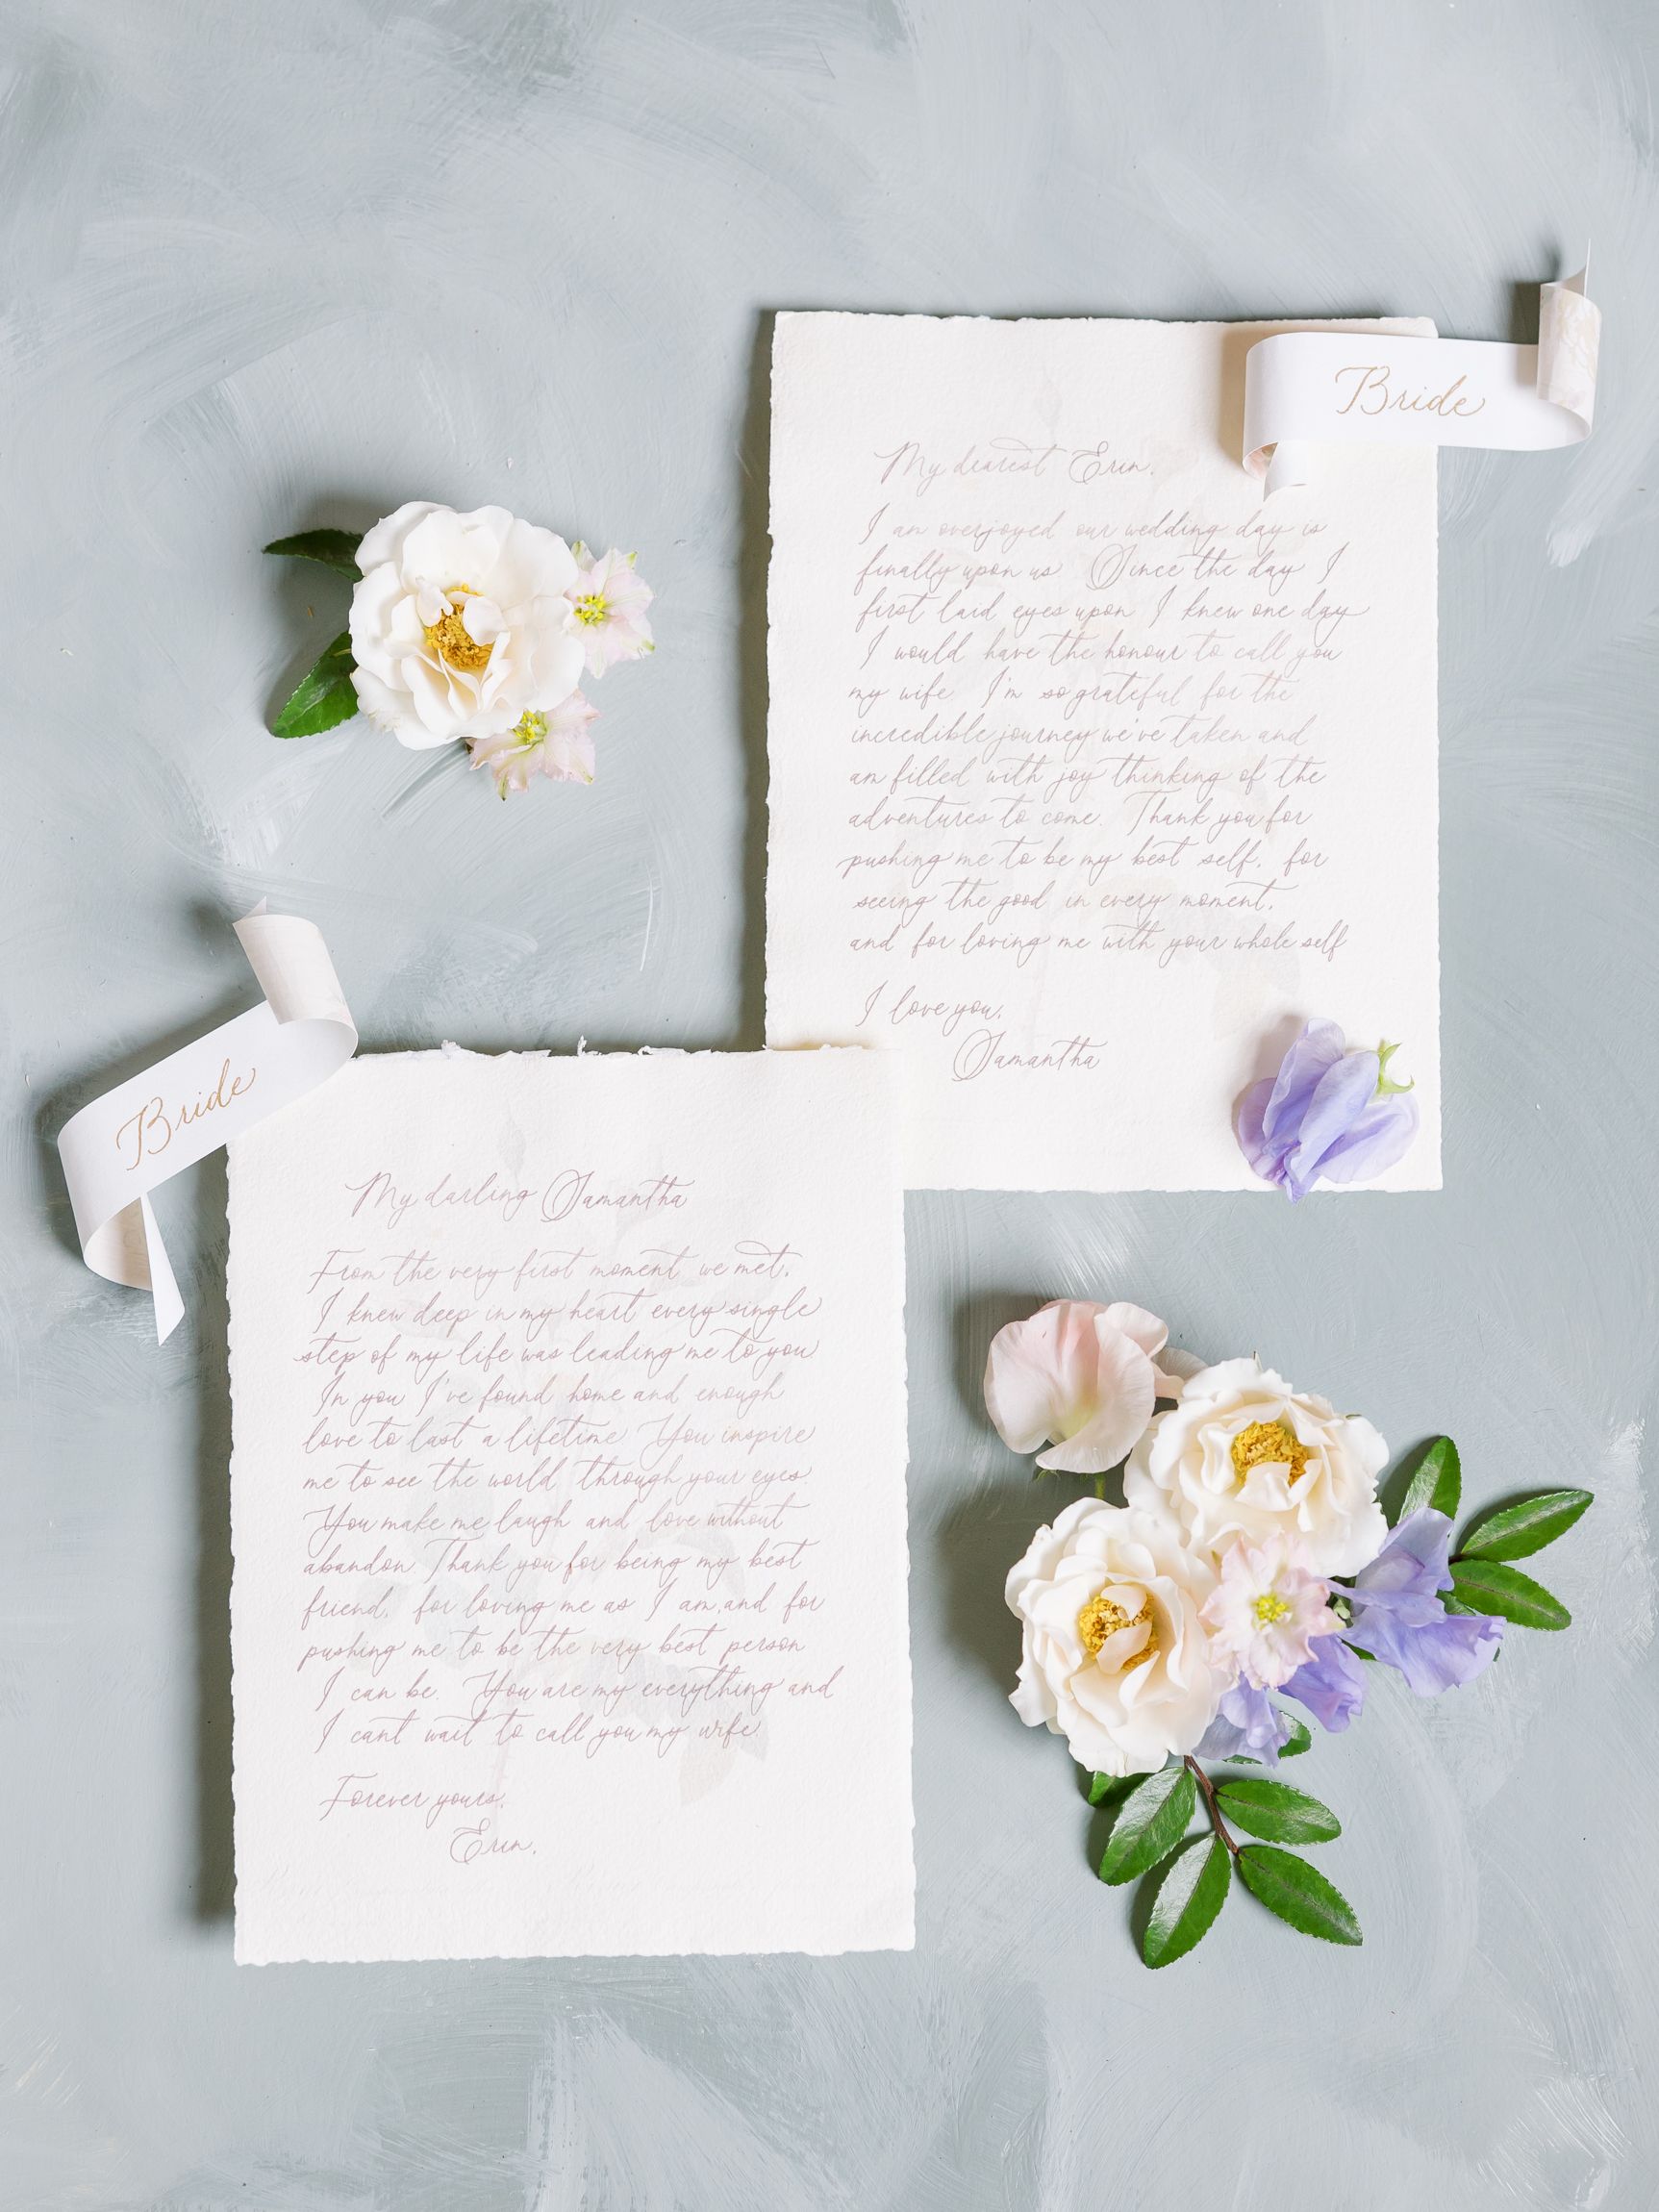 Bride
My dearest Erin,
I am overjoyed our wedding day is
finally upon us. Since the day I
first laid eyes upon I knew one day
I would have the honour to call you
my wife. I'm so grateful for the
incredible journey we've taken and
am filled with joy thinking of the
adventures to come. Thank you for
pushing me to be my best self, for
seeing the good in every moment,
and for loving me with your whole self
I love you,
Samantha
Bride
My darling Samantha
From the very first moment we met,
I knew deep in my heart every single
step of my life was leading me to you
In you I've found home and enough
love to last a lifetime. You inspire
me to see the world through your eyes.
You make me laugh and love without
abandon. Thank you for being my best
friend, for loving me as I am, and for
pushing me to be the very best person
I can be. You are my everything and
I cant wait to call you my wife.
Forever yours,
Erin,